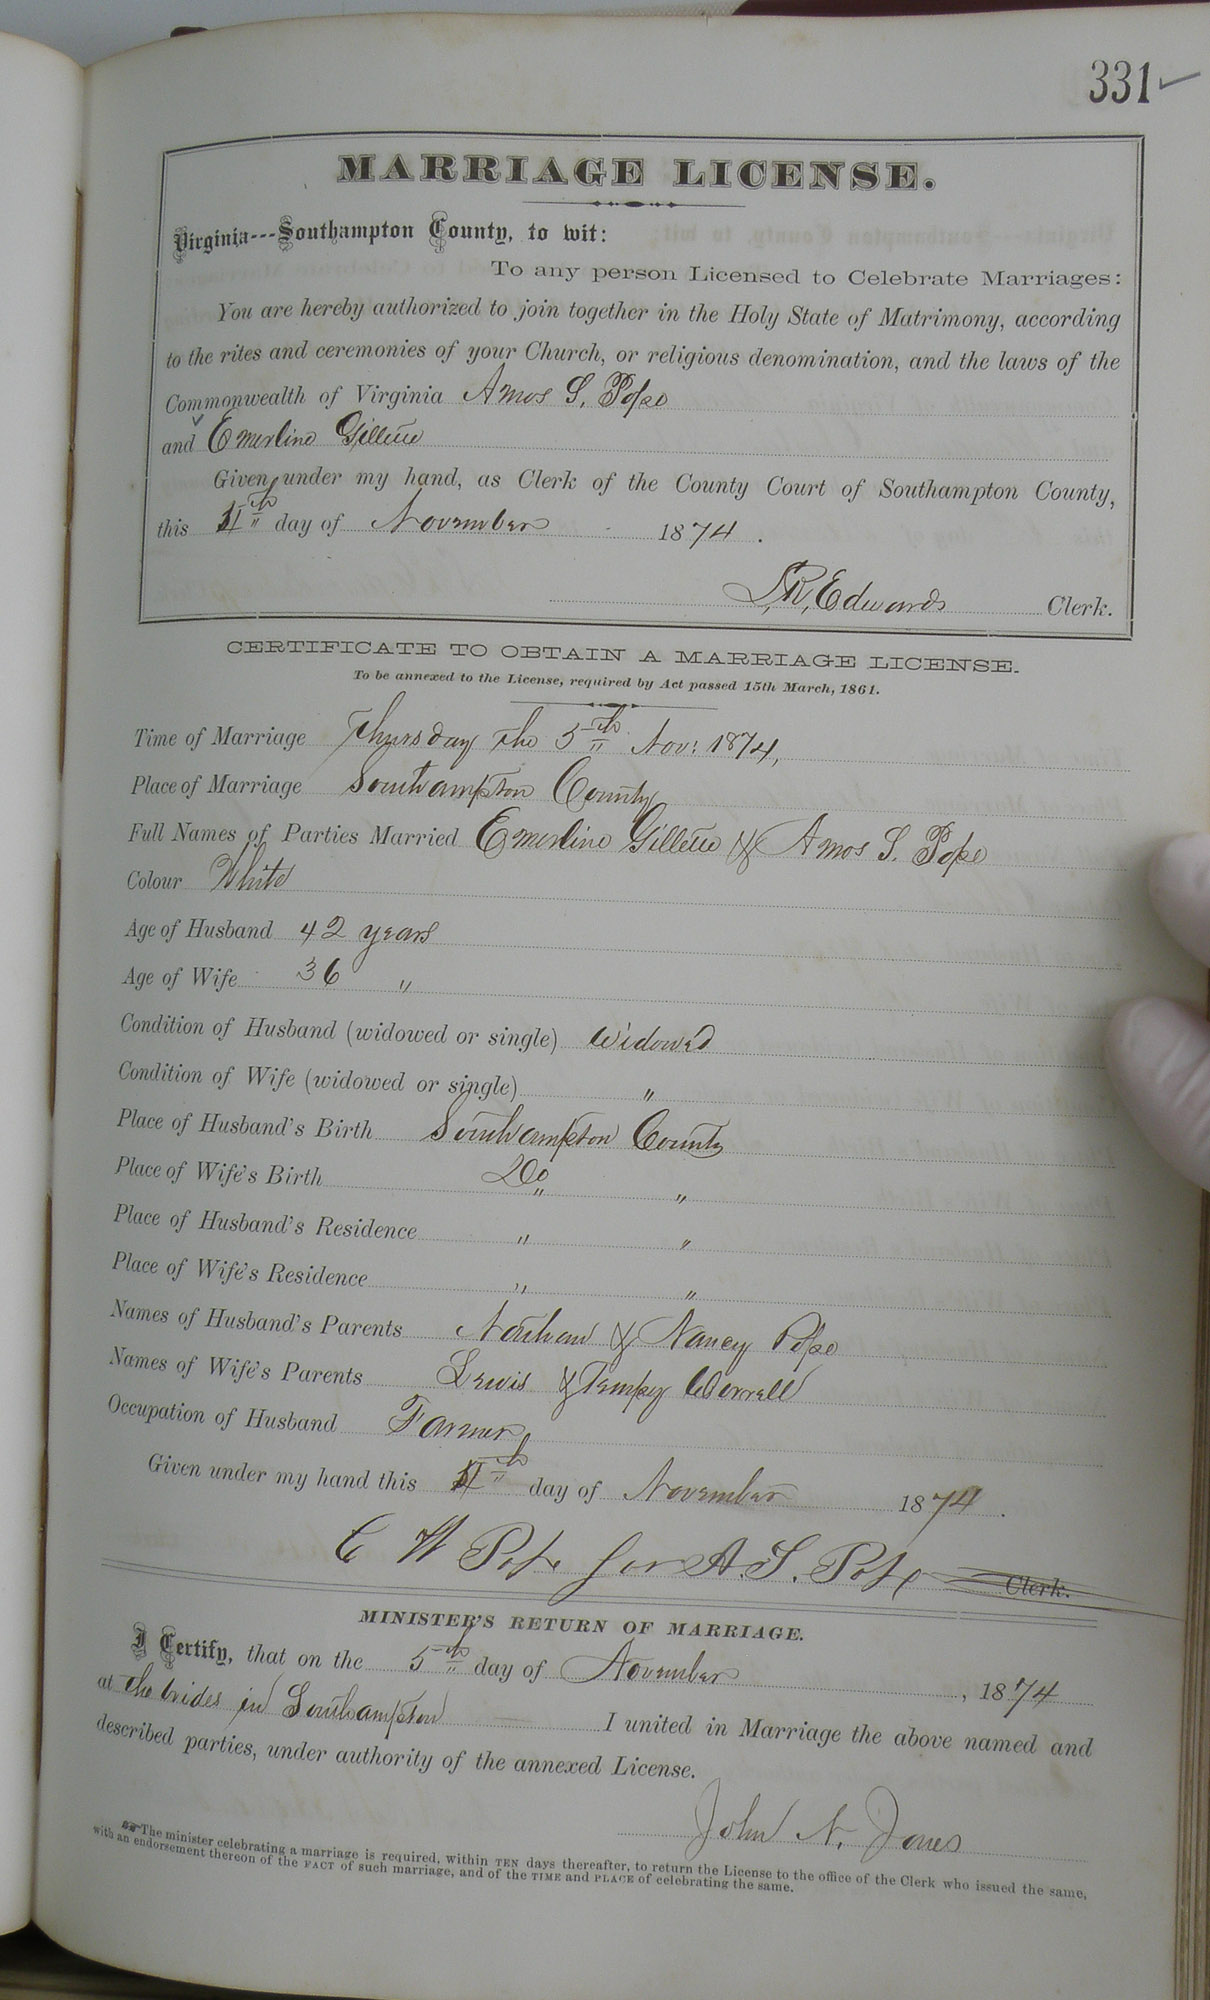 331
MARRIAGE LICENSE.
Virginia---Southampton County, to wit:
To any person Licensed to Celebrate Marriages:
You are hereby authorized to join together in the Holy State of Matrimony, according
to the rites and ceremonies of your Church, or religious denomination, and the laws of the
Commonwealth of Virginia Amos S. Pope
and Emerline Gillette
Given under my hand, as Clerk of the County Court of Southampton County,
this 4th day of November 1874.
L.R. Edwards Clerk.
CERTIFICATE TO OBTAIN A MARRIAGE LICENSE.
To be annexed to the License, required by Act passed 15th March, 1861.
Time of Marriage Thursday the 5th Nov: 1874,
Place of Marriage Southampton County
Full Names of Parties Married Emerline Gillette & Amos S. Pope
Colour White
Age of Husband 42 years
Age of Wife 36 "
Condition of Husband (widowed or single) Widowed
Condition of Wife (widowed or single) "
Place of Husband's Birth Southampton County
Place of Wife's Birth Do "
Place of Husband's Residence " "
Place of Wife's Residence " "
Names of Husband's Parents Nathan & Nancy Pope
Names of Wife's Parents Lewis & Tempy Worrell
Occupation of Husband Farmer
Given under my hand this 4th day of November 1874.
C W Pope for A. S. Pope Clerk.
MINISTER'S RETURN OF MARRIAGE.
I Certify, that on the 5th day of November, 1874
at the brides in Southampton I united in Marriage the above named and
described parties, under authority of the annexed License.
John N. Jones
The minister celebrating a marriage is required, within TEN days thereafter, to return the License to the office of the Clerk who issued the same,
with an endorsement thereon of the FACT of such marriage, and of the TIME and PLACE of celebrating the same.